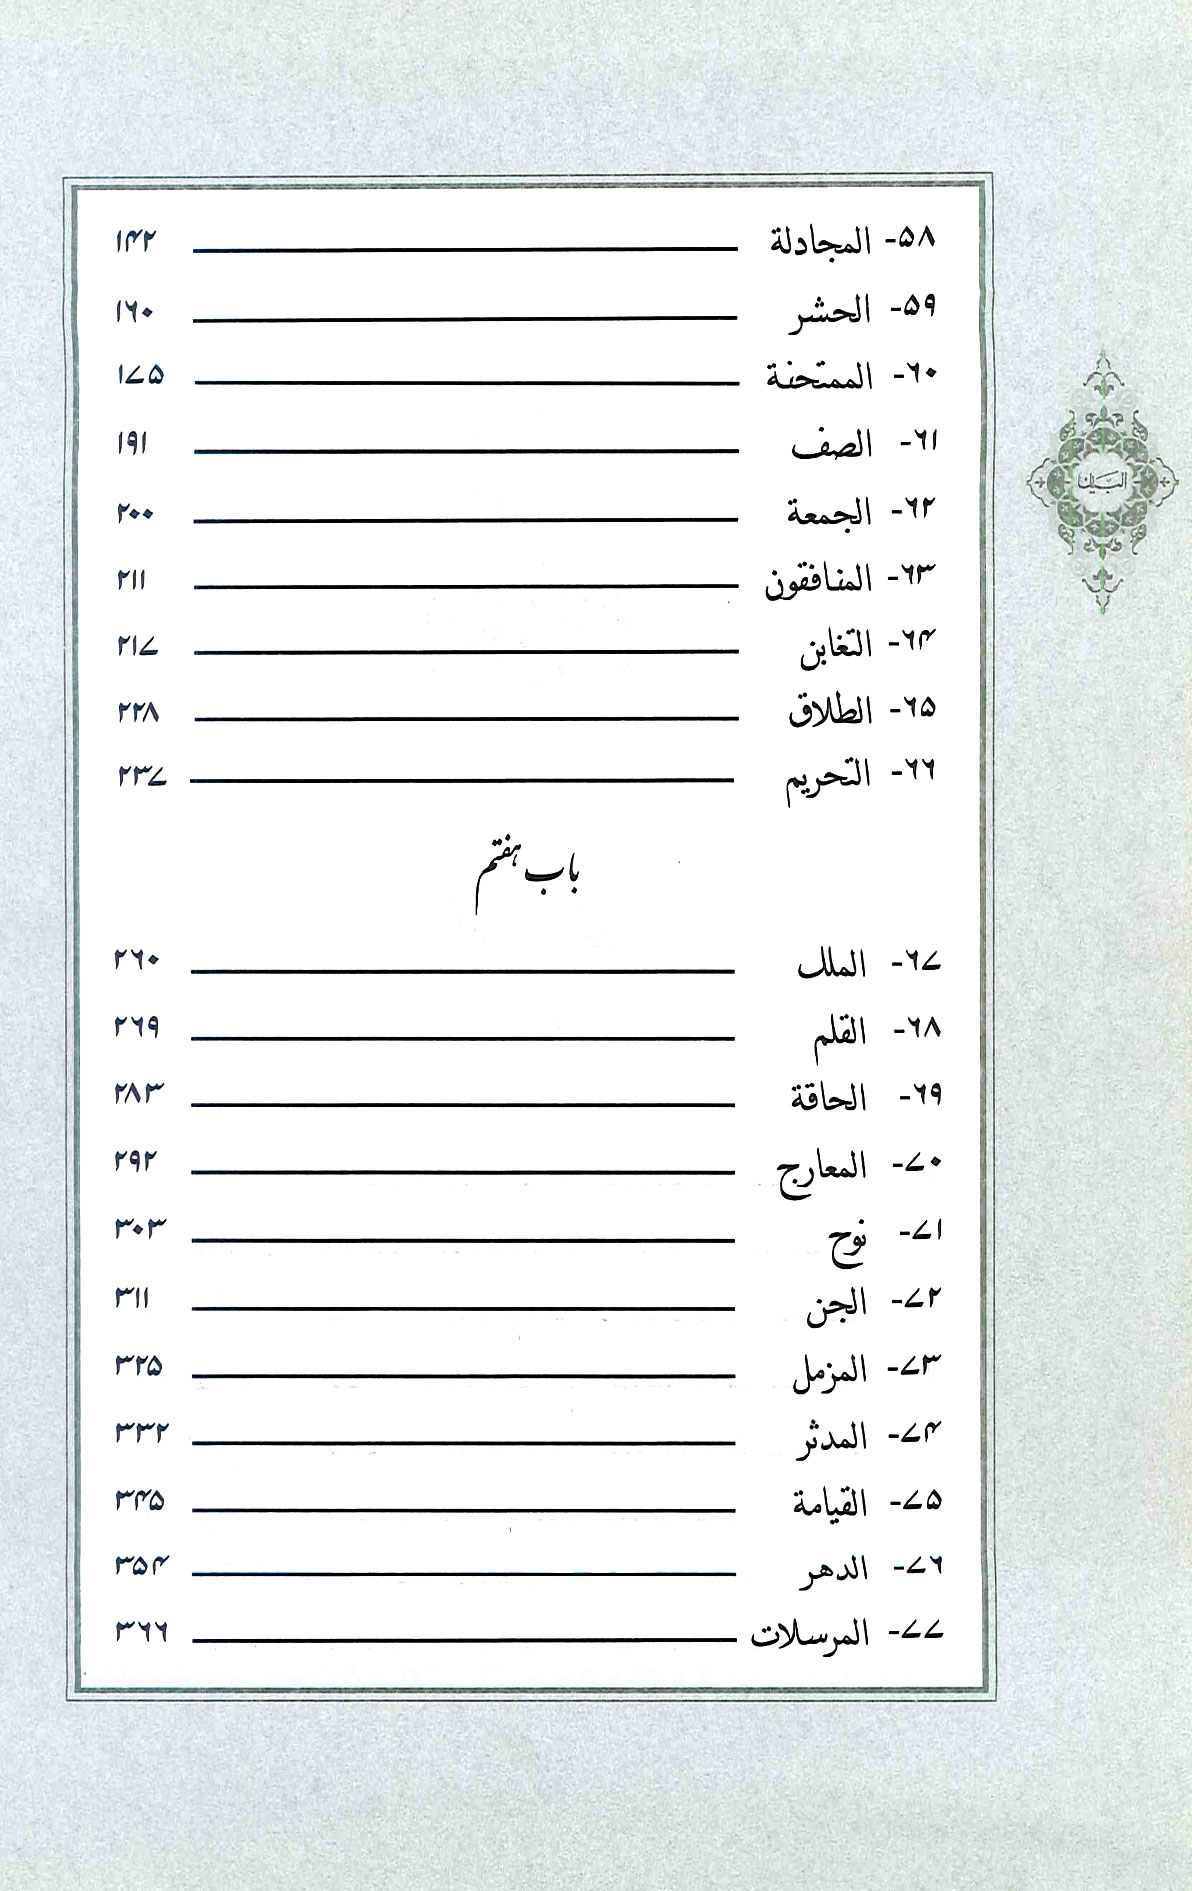 ۵۸- المجادلة ۱۴۲
۵۹- الحشر ۱۶۰
۶۰- الممتحنة ۱۷۵
۶۱- الصف ۱۹۱
۶۲- الجمعة ۲۰۰
۶۳- المنافقون ۲۱۱
۶۴- التغابن ۲۱۷
۶۵- الطلاق ۲۲۸
۶۶- التحريم ۲۳۷
باب ہفتم
۶۷- الملك ۲۶۰
۶۸- القلم ۲۶۹
۶۹- الحاقة ۲۸۳
۷۰- المعارج ۲۹۲
۷۱- نوح ۳۰۳
۷۲- الجن ۳۱۱
۷۳- المزمل ۳۲۵
۷۴- المدثر ۳۳۲
۷۵- القيامة ۳۴۵
۷۶- الدهر ۳۵۴
۷۷- المرسلات ۳۶۶
البيان